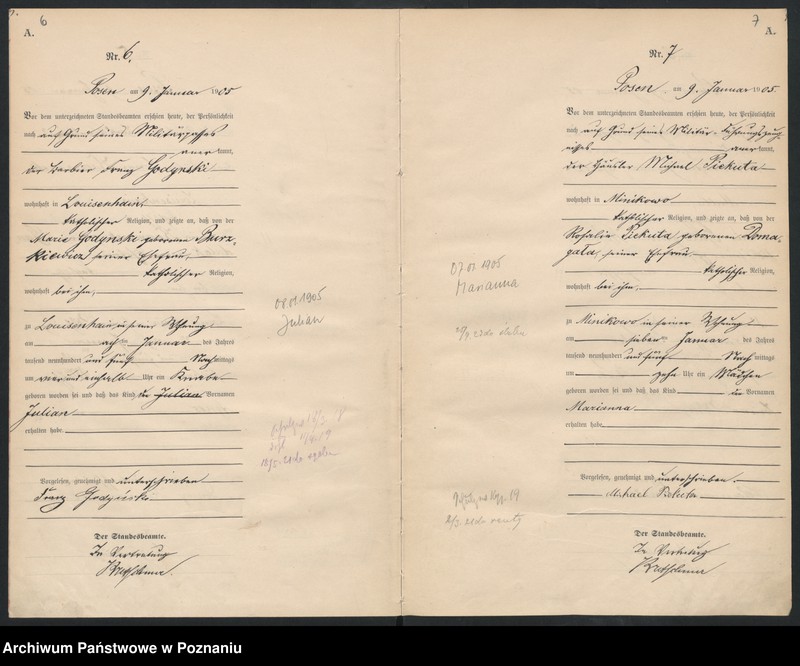 6
A.
Nr. 6.
Posen am 9. Januar 1905
Vor dem unterzeichneten Standesbeamten erschien heute, der Persönlichkeit
nach auf Grund seines Militärpasses
anerkannt,
der Barbier Franz Godynski
wohnhaft in Louisenhain
katholischer Religion, und zeigte an, daß von der
Marie Godynski geborenen Burz-
kiewicz, seiner Ehefrau
katholischer Religion,
wohnhaft bei ihm,
zu Louisenhain in seiner Wohnung
am acht Januar des Jahres
tausend neunhundert und fünf Nachmittags
um vier und einhalb Uhr ein Knabe
geboren worden sei und daß das Kind die Vornamen
Julian
erhalten habe.
Vorgelesen, genehmigt und unterschrieben
Franz Godynski
Der Standesbeamte.
In Vertretung
08.01.1905
Julian
7
A.
Nr. 7
Posen am 9. Januar 1905
Vor dem unterzeichneten Standesbeamten erschien heute, der Persönlichkeit
nach auf Grund seines Militär-Führungszeug-
nisses anerkannt,
der Häusler Michael Piekuta
wohnhaft in Minikowo
katholischer Religion, und zeigte an, daß von der
Rosalie Piekuta geborenen Doma-
gała, seiner Ehefrau
katholischer Religion,
wohnhaft bei ihm,
zu Minikowo in seiner Wohnung
am sieben Januar des Jahres
tausend neunhundert und fünf Nachmittags
um zehn Uhr ein Mädchen
geboren worden sei und daß das Kind den Vornamen
Marianna
erhalten habe.
Vorgelesen, genehmigt und unterschrieben.
Michael Piekuta
Der Standesbeamte.
In Vertretung
07.01.1905
Marianna
Archiwum Państwowe w Poznaniu